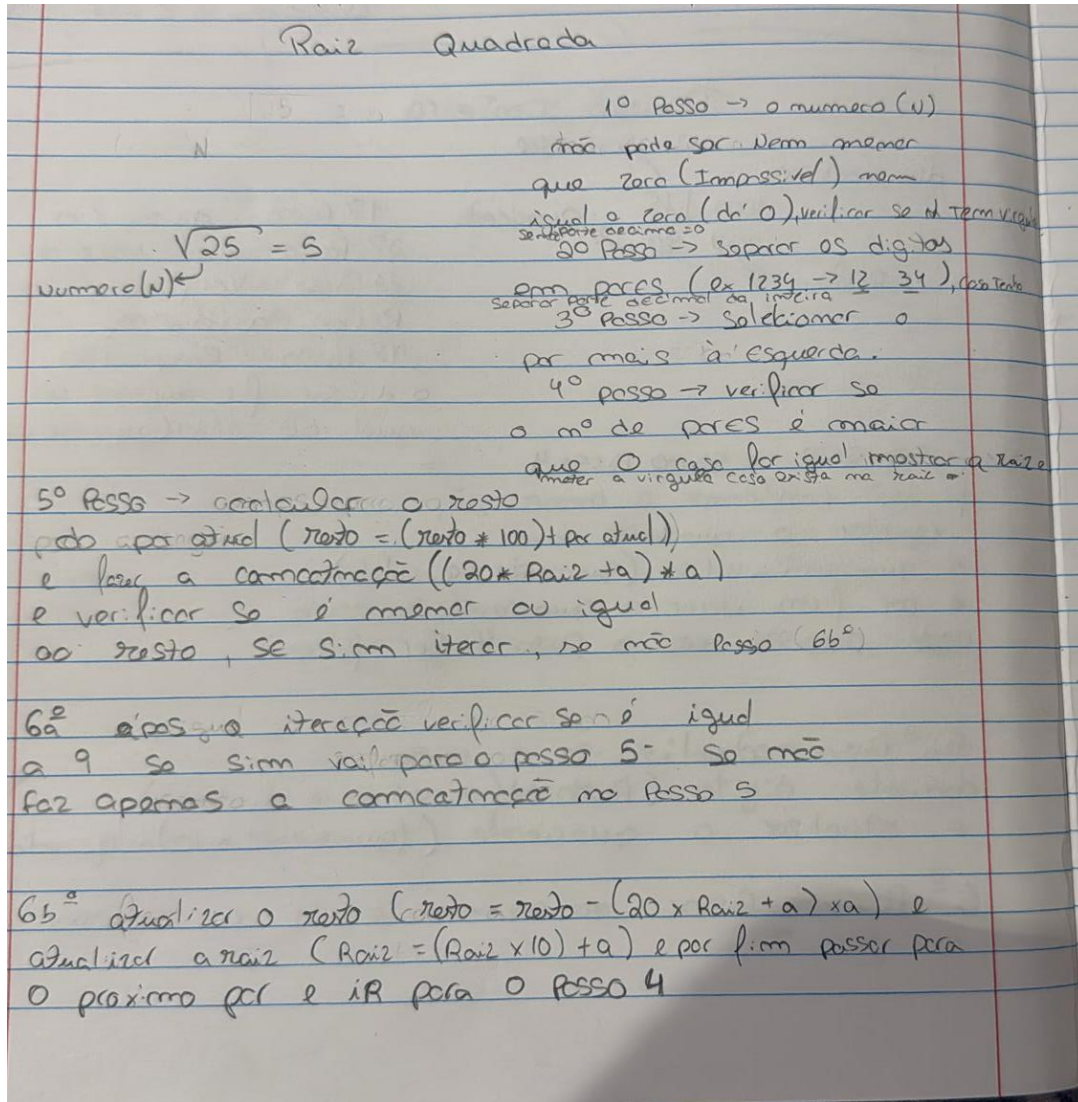 Raiz Quadrada
1º Passo → o numero (N)
não pode ser nem menor
que zero (Impossivel) nem
igual a zero (dá 0), verificar se N tem virgula
se não parte decimal = 0
2º Passo → separar os digitos
em pares (ex 1234 → 12 34), caso tenha
separar parte decimal da inteira
3º Passo → Selecionar o
par mais à esquerda.
4º passo → verificar se
o nº de pares é maior
que 0 caso for igual mostrar a raiz e
meter a virgula caso exista na raiz
N
√25 = 5
Numero (N)
5º Passo → calcular o resto
do par atual (resto = (resto * 100) + par atual)
e fazer a concatnação ((20 * Raiz + a) * a)
e verificar se é menor ou igual
ao resto, se sim iterar, se não Passo (6bº)
6aº após a iteração verificar se é igual
a 9 se sim vai para o passo 5- se não
faz apenas a concatnação no Passo 5
6bº atualizar o resto (resto = resto - (20 x Raiz + a) x a) e
atualizar a raiz (Raiz = (Raiz x 10) + a) e por fim passar para
o proximo par e iR para o Passo 4